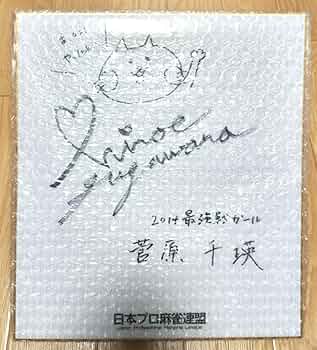 Chinoe
Sugawara
2014最強戦ガール
菅原 千瑛
日本プロ麻雀連盟
Japan Professional Mahjong League